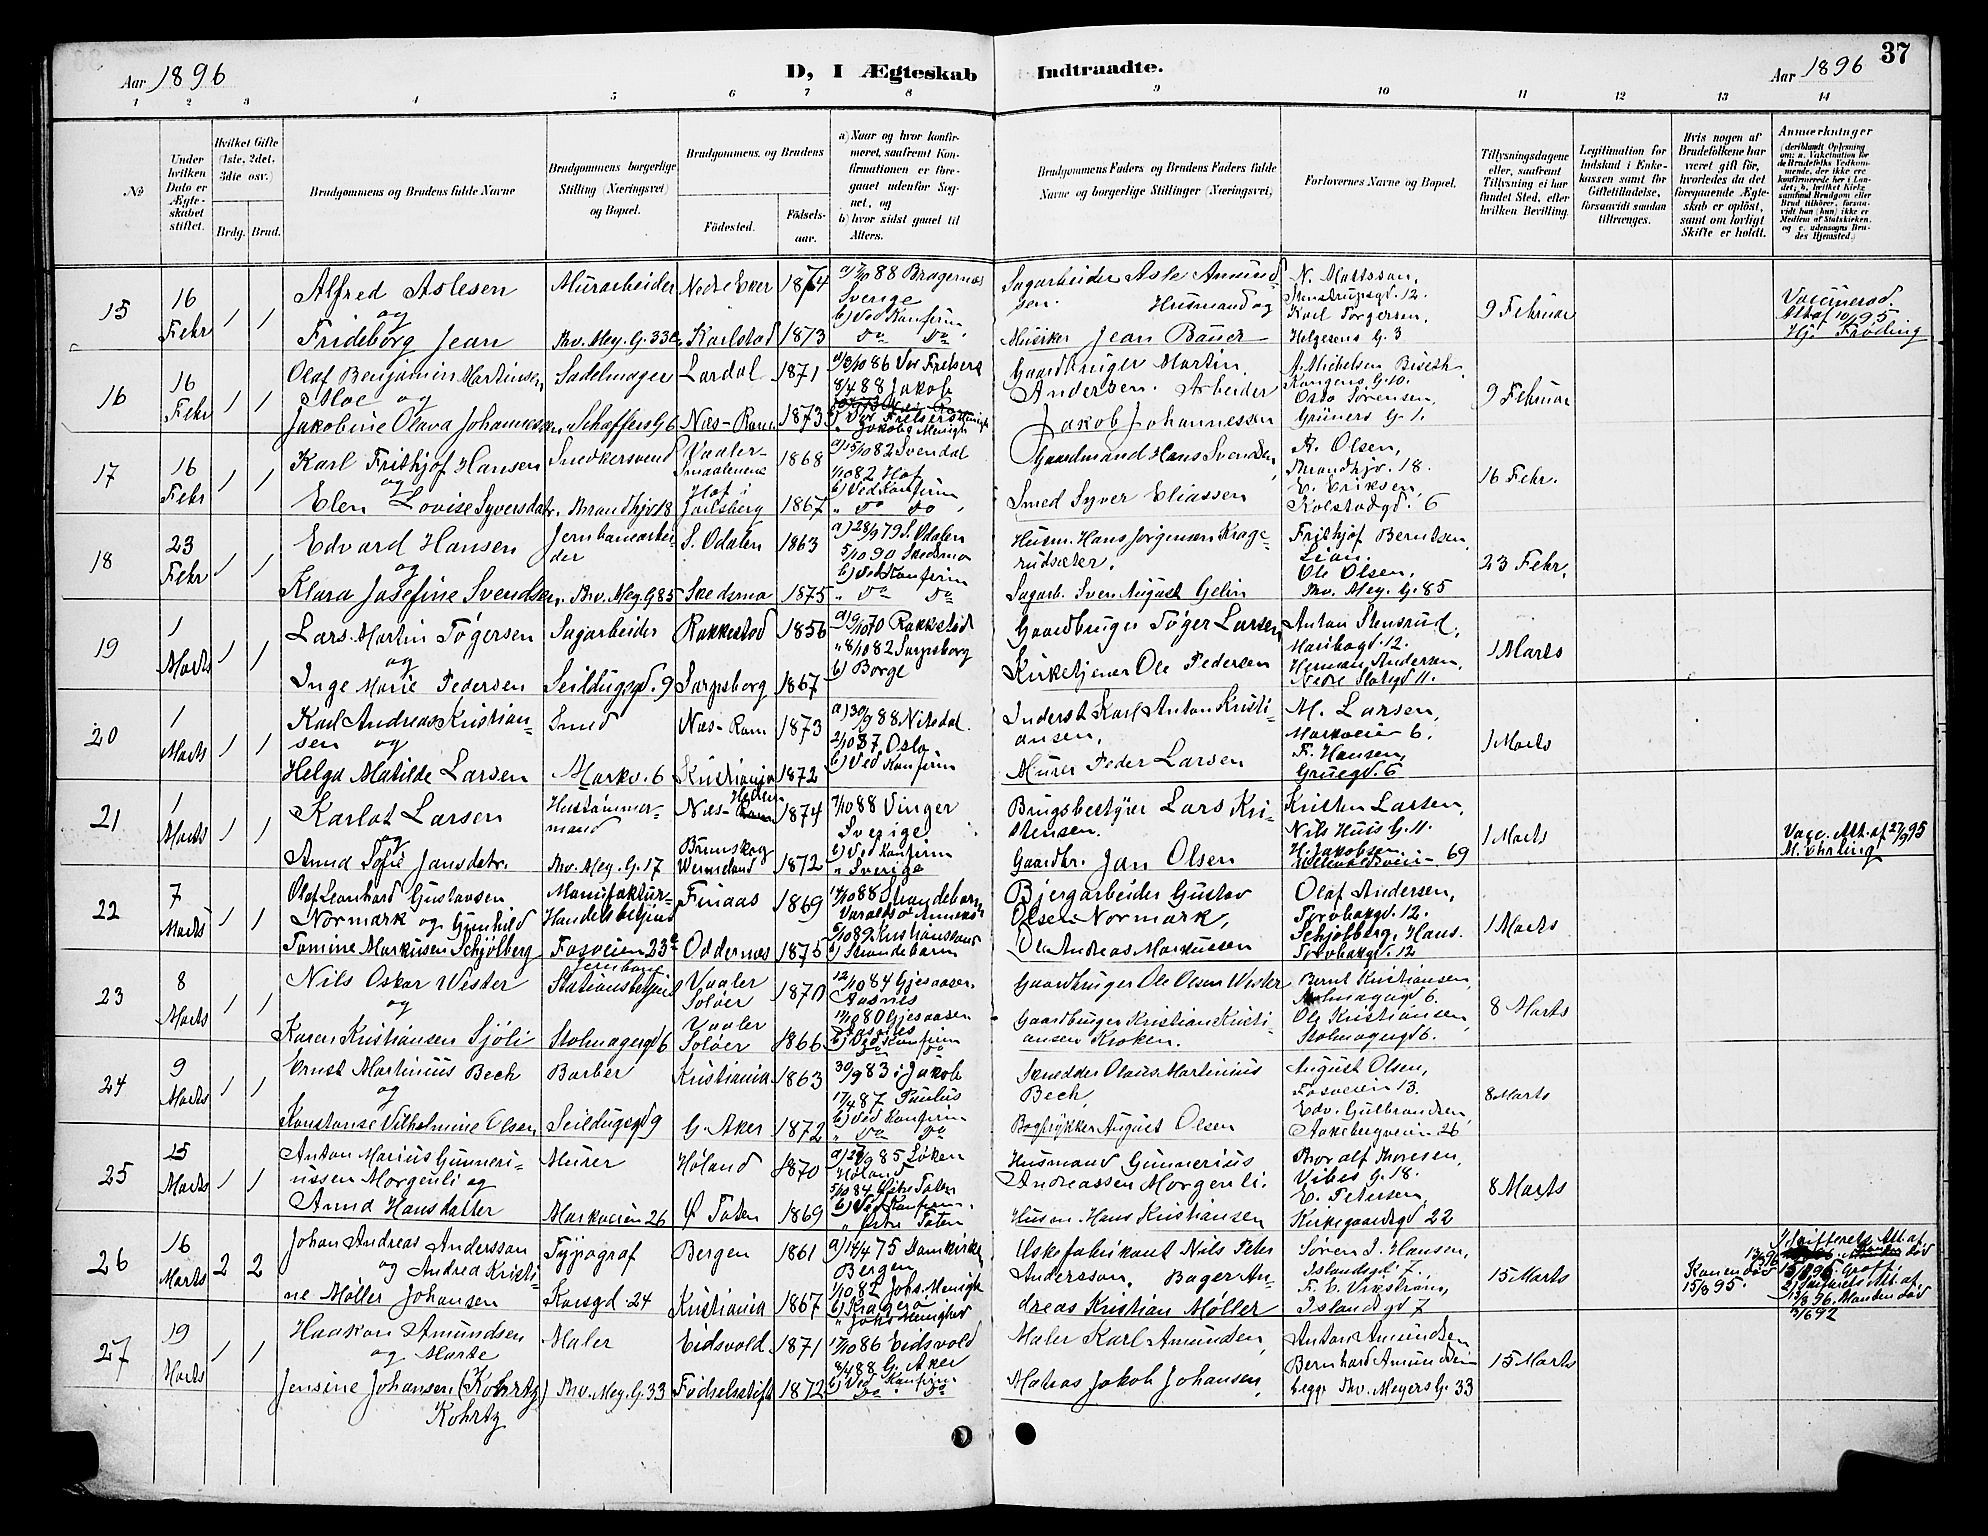 37
Aar 1896
D, I Ægteskab Indtraadte.
Aar 1896
1 2 3 4 5 6 7 8 9 10 11 12 13 14
No
Under hvilken Dato er Ægteskabet stiftet.
Hvilket Gifte (1ste, 2det, 3die osv.)
Brdg. Brud.
Brudgommens og Brudens fulde Navne
Brudgommens borgerlige Stilling (Næringsvei) og Bopæl.
Brudgommens og Brudens
Fødested.
Fødselsaar.
a) Naar og hvor konfirmeret, saafremt Konfirmationen er foregaaet udenfor Sognet, og
b) hvor sidst gaaet til Alters.
Brudgommens Faders og Brudens Faders fulde Navne og borgerlige Stillinger (Næringsvei)
Forlovernes Navne og Bopæl.
Tillysningsdagene eller, saafremt Tillysning ei har fundet Sted, efter hvilken Bevilling.
Legitimation for Indskud i Enkekassen samt for Giftetilladelse, forsaavidt saadan tiltrænges.
Hvis nogen af Brudefolkene har været gift før, hvorledes da det foregaaende Ægteskab er opløst, samt om lovligt Skifte er holdt.
Anmærkninger
15
16 Febr
1 1
Alfred Aslesen
og
Frideborg Jean
Murarbeider
Thv. Mey. G. 33
Nedre Eker 1864
Karlstad 1873
88 Bragernæs
Sverige
b) Ved Konfirm
Do Do
Sagarbeider Asle Amundsen. Husmand og
Musiker Jean Bauer
N. Mattsson,
Stenstrupsgd. 12.
Karl Torgersen,
Helgesens G. 3
9 Februar
Vaccinered.
10/95
16
16 Febr
1 1
Olaf Benjamin Martinsen
Moe og
Jakobine Olava Johannessen
Sadelmager
Schaffers G 6
Lardal 1871
Næs-Rom. 1873
a) 3/10 86 Vor Frelsers
8/4 88 Jakob
Gaardbruger Martin
Andersen. Arbeider
Jakob Johannessen
Kongens G. 10.
Oslo Sørensen,
Grüners G 1.
9 Februar
17
16 Febr
1 1
Karl Frithjof Hansen
og
Elen Lovise Syversdatr.
Snedkersvend
Brandhjv 18
Vaaler-Smaalenene 1868
Hof i Jarlsberg 1867
82 Svendal
1/10 82 Hof
b) Ved Konfirm
" Do Do
Gaardmand Hans Svendsen,
Smed Syver Eliassen
A. Olsen,
Brandhjv. 18.
E. Eriksen,
Kolstadgd. 6
16 Febr.
18
23 Febr
1 1
Edvard Hansen
og
Klara Josefine Svendsen
Jernbanearbeider
Thv. Mey. G 85
S. Odalen 1863
Skedsmo 1875
a) 28/9 79 S. Odalen
5/10 90 Skedsmo
b) Ved Konfirm
" Do Do
Husm. Hans Jørgensen Kragerudsæter.
Sagarb. Sven August Gelin
Frithjof Berntsen,
Lian.
Ole Olsen,
Thv. Mey. G. 85
23 Febr.
19
1 Marts
1 1
Lars Martin Tøgersen
og
Inge Marie Pedersen
Sagarbeider
Seildugsgd. 9
Rakkestad 1856
Sarpsborg 1867
a) 9/10 70 Rakkestad
" 8/10 82 Sarpsborg
b) Borge
Gaardbruger Tøger Larsen
Kirketjener Ole Pedersen
Anton Stensrud,
Maribogd. 12.
Herman Andersen,
Nedre Slotsgd 11.
1 Marts
20
1 Marts
1 1
Karl Andreas Kristiansen
og
Helga Matilde Larsen
Smed
Markv. 6
Næs-Rom 1873
Kristiania 1872
a) 30/9 88 Nitedal
2/10 87 Oslo.
b) Ved Konfirm
Inderst Karl Anton Kristiansen,
Murer Peder Larsen
M. Larsen,
Markveien 6.
F. Hansen,
Gruegd. 6
1 Marts
21
1 Marts
1 1
Karlot Larsen
og
Anna Sofie Jansdatr.
Hustømmermand
Thv. Mey. G. 17
Næs-Hedem 1874
Brunskog Wermeland 1872
88 Vinger
Sverige
b) Ved Konfirm
" Sverige
Brugsbestyrer Lars Kristensen.
Gaardbr. Jan Olsen
Kristen Larsen,
Nils Huus G. 11.
H. Jakobsen
69
1 Marts
Vacc. Att. af 27/9 95
22
7 Marts
1 1
Olaf Leonhard Gustavsen
Normark og Gunhild
Tomine Markusen Schjølberg
Manufaktur-Handelsbetjent
Fosveien 23
Finaas 1869
Oddernes 1875
88 Strandebarm
Varaldsø Anneks
89 Kristianssand
b) Strandebarm
Bjergarbeider Gustav
Olsen Normark,
Ole Andreas Markussen
Olaf Andersen,
Torvbakgd. 12.
Schjølberg, Hans.
Torvbakgd. 12
1 Marts
23
8 Marts
1 1
Nils Oskar Wester
og
Karen Kristiansen Sjøli
Jernbane Stationsbetjent
Stolmagergd 6
Vaaler Soløer 1870
Vaaler Soløer 1866
12/10 84 Gjesaasen
Aasnes
80 Gjesaasen
Aasnes
b) Ved Konfirm
Gaardbruger Ole Olsen Wester
Gaardbruger Kristian Kristiansen Kroken.
Bernt Kristiansen,
Stolmagergd 6.
Ole Kristiansen,
Stolmagergd 6.
8 Marts
24
9 Marts
1 1
Ernst Martinius Bech
og
Konstanse Vilhelmine Olsen
Barber
Seildugsgd 9
Kristiania 1863
G. Aker 1872
30/9 83 i Jakob
17/4 87 Paulus
b) Ved Konfirm
" Do Do
Snedker Olaus Martinius
Bech,
Bogtrykker August Olsen
August Olsen,
Fosveien 13.
Edv. Gulbrandsen,
Aakebergveien 26
8 Marts
25
15 Marts
1 1
Anton Marius Gunneriussen Morgenli og
Anna Hansdatter
Murer
Markveien 26
Høland 1870
Ø Toten 1869
85 Løken
Høland
5/10 84 Østre Toten
b) Ved Konfirm.
" Østre Toten
Husmand Gunnerius
Andreassen Morgenli.
Husm. Hans Kristiansen
Thoralf Thoresen,
Vibes G. 18.
E. Petersen,
Kirkegaardsgd 22
8 Marts
26
16 Marts
2 2
Johan Andreas Andersson
og Andrea Kristine Møller Johansen
Typograf
Korsgd. 24
Bergen 1861
Kristiania 1867
75 Domkirken
Bergen
1/10 82 Johs. Menigh
b) Kragerø
" Johs Menighed
Æskefabrikant Nils Peter
Andersson. Bager Andreas Kristian Møller
Søren J. Hansen,
Islandsgd 7.
F. E. Vikstrøm,
Islandsgd 7
15 Marts
Konen død
15/8 95.
Skifterets Att. af
15/8 95. Groff.
Att. af
13/8 96. Manden død
3/6 92
27
19 Marts
1 1
Haakon Amundsen
og Marte
Jensine Johansen (Kohrtz)
Kohrtz
Maler
Thv. Mey. G. 33
Eidsvold 1871
Fødselsstift 1872
17/10 86 Eidsvold
8/4 88 G. Aker
b) Ved Konfirm
Do Do
Maler Karl Amunden,
Matros Jakob Johansen,
Anton Amundsen
Bernhard Amundsen
begge Thv. Meyers G. 33
15 Marts